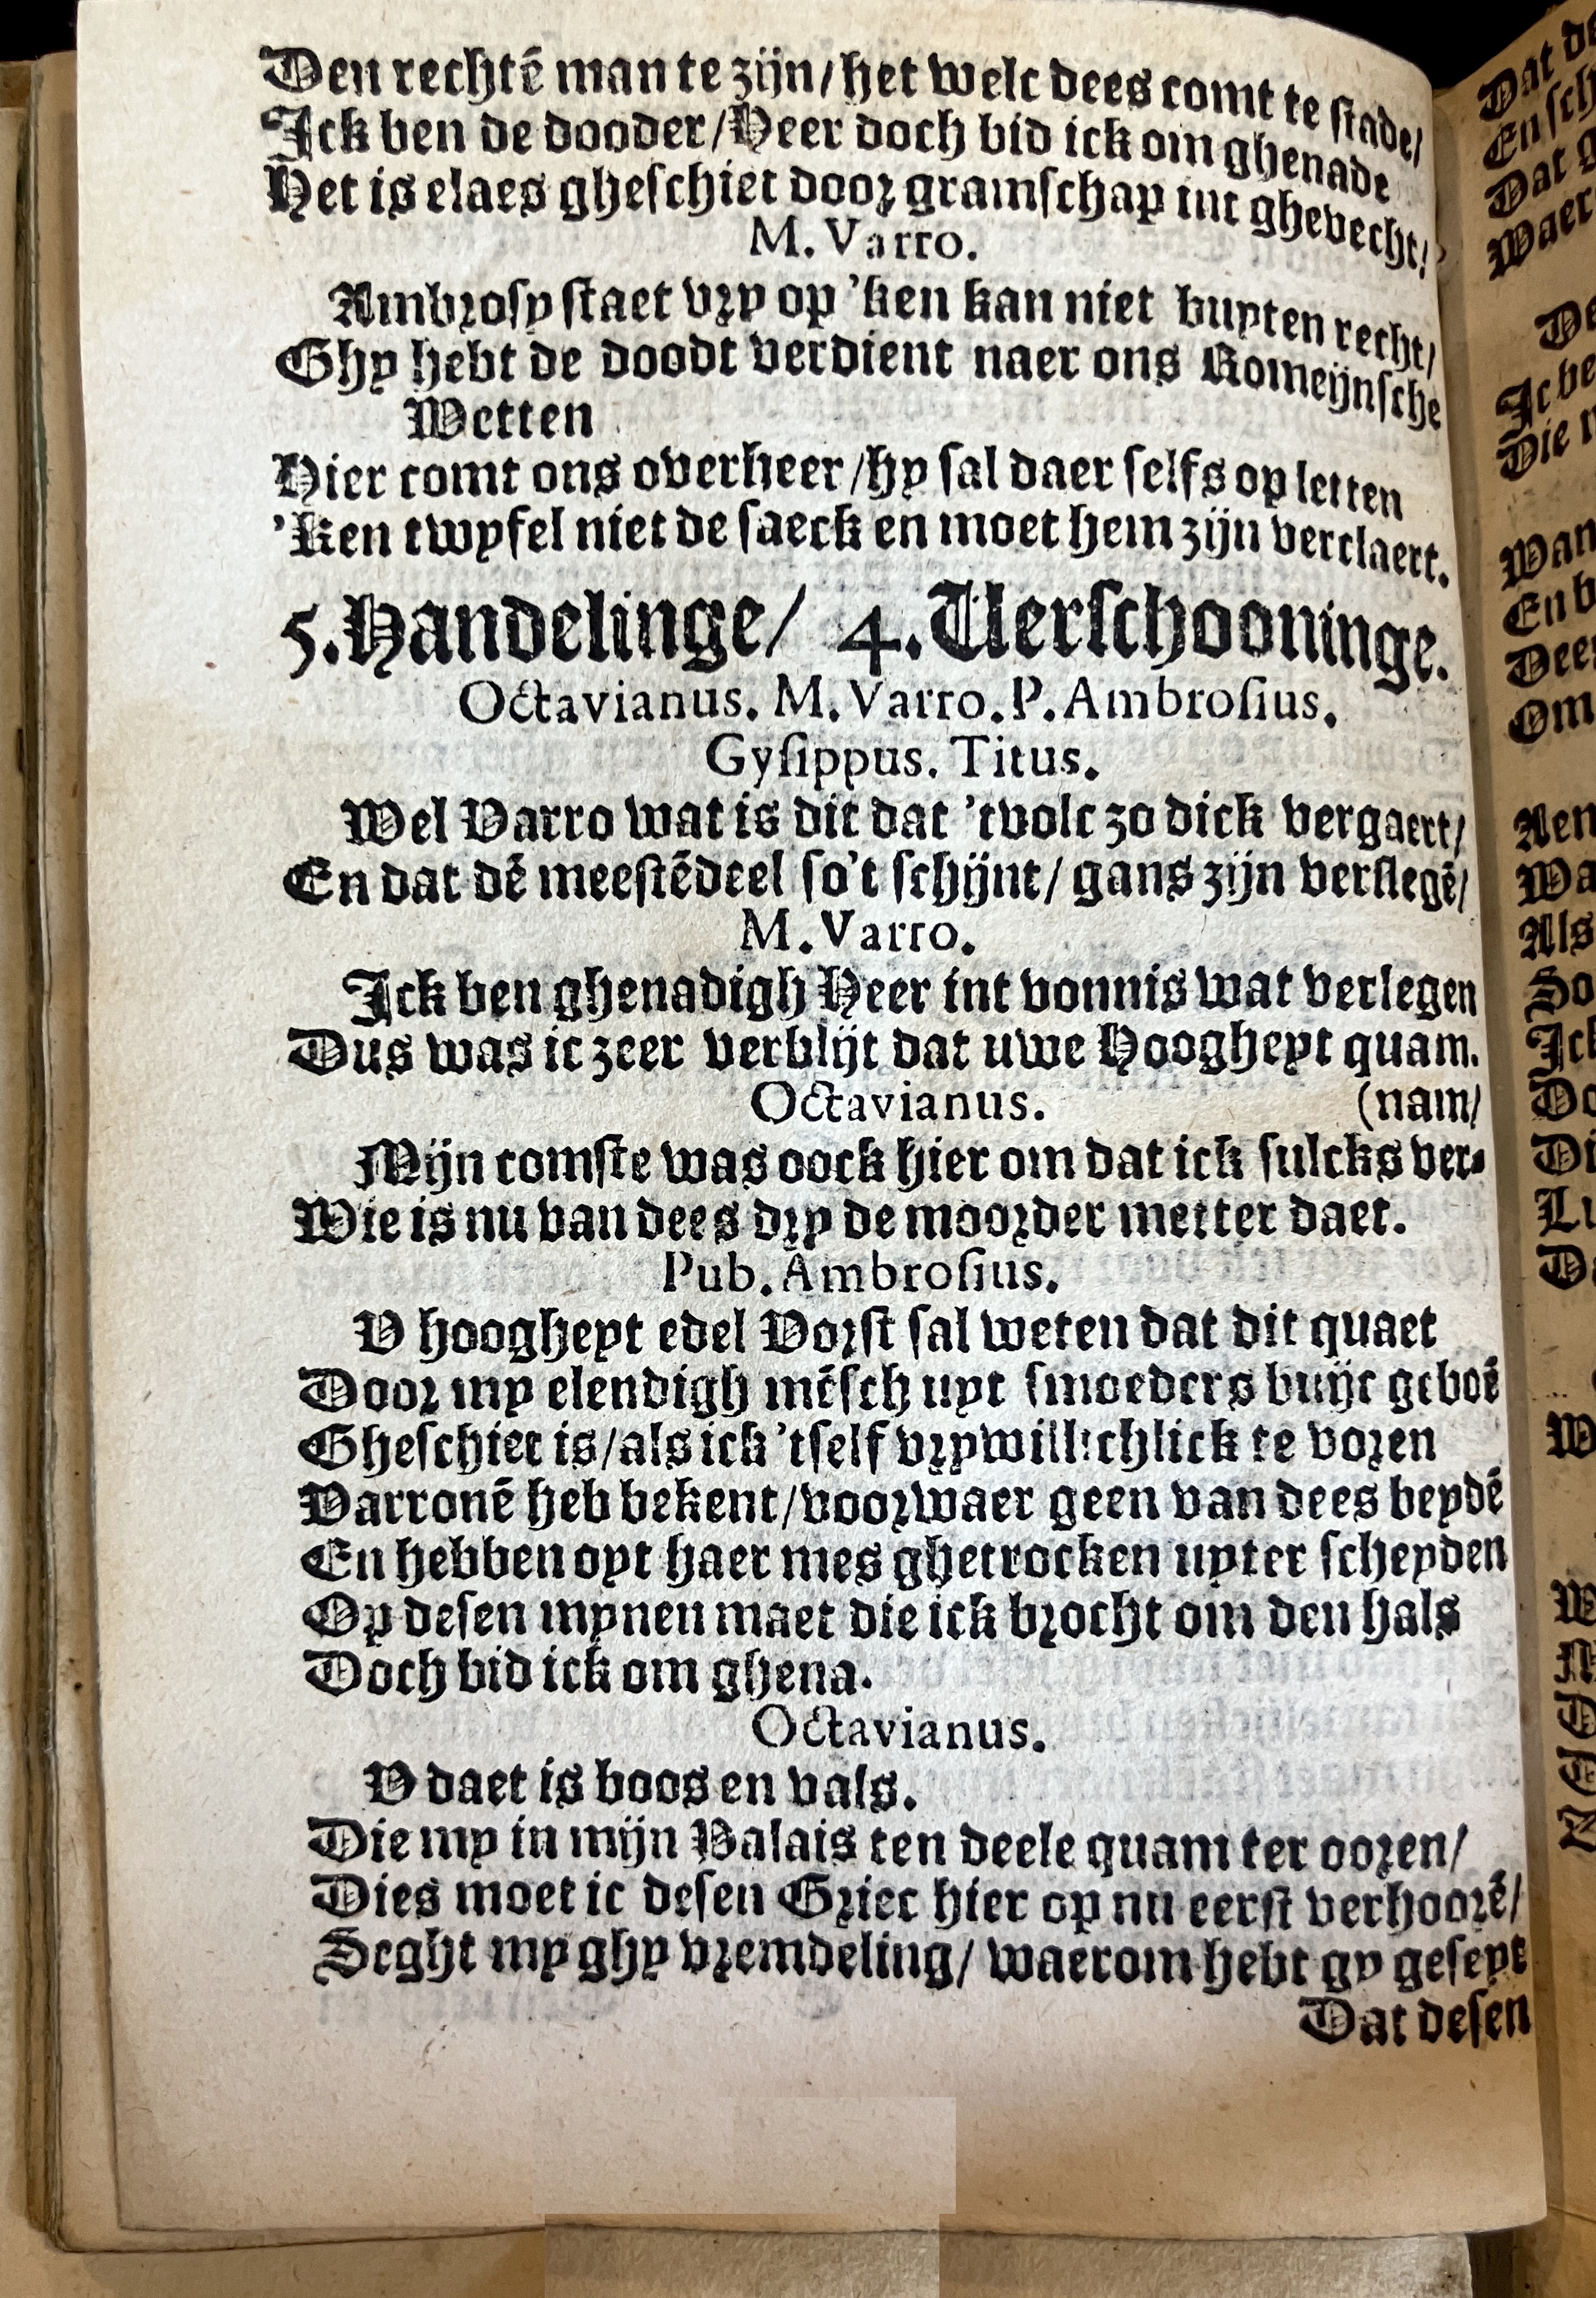 Den rechtē man te zijn/het welc dees comt te stade/
Ick ben de dooder/Heer doch bid ick om ghenade
Het is elaes gheschiet door gramschap int ghevecht/
M. Varro.
Ambrosy staet vry op 'ken kan niet buyten recht/
Ghy hebt de doodt verdient naer ons Romeijnsche
Wetten
Hier comt ons overheer/hy sal daer selfs op letten
'Ken twyfel niet de saeck en moet hem zijn verclaert.
5. Handelinge/ 4. Verschooninge.
Octavianus. M. Varro. P. Ambrosius.
Gysippus. Titus.
Wel Varro wat is dit dat 'tvolc zo dick vergaert/
En dat dē meestēdeel so't schijnt/ gans zijn verslegē/
M. Varro.
Ick ben ghenadigh Heer int vonnis wat verlegen
Dus was ic zeer verblijt dat uwe Hoogheyt quam.
Octavianus. (nam/
Mijn comste was oock hier om dat ick sulcks ver-
Wie is nu van dees dry de moorder metter daet.
Pub. Ambrosius.
V hoogheyt edel Vorst sal weten dat dit quaet
Door my elendigh mēsch uyt smoeders buijc geboē
Gheschiet is/als ick 'tself vrywillichlick te voren
Varronē heb bekent/voorwaer geen van dees beydē
En hebben oyt haer mes ghetrocken uyter scheyden
Op desen mynen maet die ick brocht om den hals
Doch bid ick om ghena.
Octavianus.
V daet is boos en vals.
Die my in mijn Palais ten deele quam ter ooren/
Dies moet ic desen Griec hier op nu eerst verhoorē/
Seght my ghy vremdeling/ waerom hebt gy geseyt
Dat desen